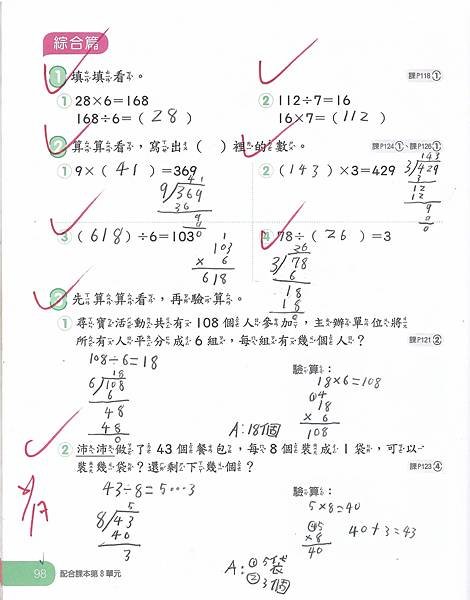 綜合篇
1 填填看。 課P118①
① 28×6=168 ② 112÷7=16
168÷6=(28) 16×7=(112)
2 算算看,寫出( )裡的數。 課P124①、P126①
① 9×(41)=369 ②(143)×3=429
41
9/369
36
9
9
0
143
3/429
3
12
12
9
9
0
③(618)÷6=103 ④ 78÷(26)=3
1
103
× 6
618
26
3/78
6
18
18
0
3 先算算看,再驗算。
① 尋寶活動共有108個人參加,主辦單位將
所有人平分成6組,每組有幾個人? 課P121②
108÷6=18
18
6/108
6
48
48
0
驗算:
18×6=108
④
18
× 6
108
A:18個
② 沛沛做了43個餐包,每8個裝成1袋,可以
裝幾袋?還剩下幾個? 課P123④
43÷8=5…3
5
8/43
40
3
驗算:
5×8=40
④5
×8
40
40+3=43
A:①5袋
②3個
98 配合課本第8單元